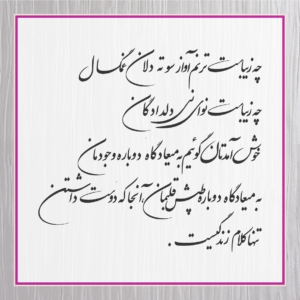 چه زیباست ترنم آواز سوته دلان غمگسار
چه زیباست نوای نی دلدادگان
خوش آمدتان گوئیم به میعادگاه دوباره وجودمان
به میعادگاه دوباره طپش قلبمان، آنجا که دوست داشتن
تنها کلام زندگیست .